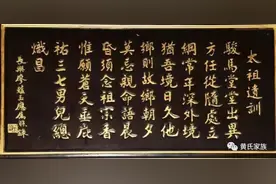 太祖遺訓
駿馬堂堂出異
方任從隨處立
綱常年深外境
猶吾境日久他
鄉則故鄉朝夕
莫忘親命語晨
昏須念祖宗香
惟願蒼天垂庇
祐三七男兒總
熾昌
黄氏家族